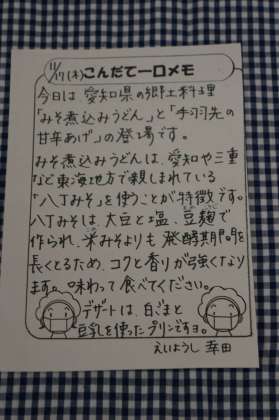 11/17(木)こんだて一口メモ
今日は愛知県の郷土料理
「みそ煮込みうどん」と「手羽先の
甘辛あげ」の登場です。
みそ煮込みうどんは、愛知や三重
など東海地方で親しまれている
「八丁みそ」を使うことが特徴です。
八丁みそは、大豆と塩、豆麹で
作られ、米みそよりも発酵期間を
長くとるため、コクと香りが強くなり
ます。味わって食べてください。
デザートは、白ごまと
豆乳を使ったプリンですヨ。
えいようし 幸田